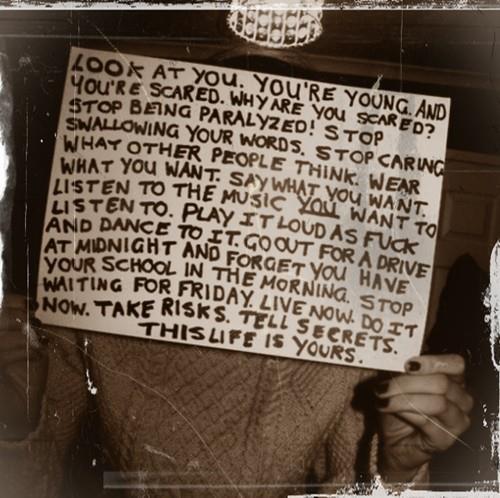 LOOK AT YOU, YOU'RE YOUNG. AND
YOU'RE SCARED. WHY ARE YOU SCARED?
STOP BEING PARALYZED! STOP
SWALLOWING YOUR WORDS. STOP CARING
WHAT OTHER PEOPLE THINK. WEAR
WHAT YOU WANT. SAY WHAT YOU WANT.
LISTEN TO THE MUSIC YOU WANT TO
LISTEN TO. PLAY IT LOUD AS FUCK
AND DANCE TO IT. GO OUT FOR A DRIVE
AT MIDNIGHT AND FORGET YOU HAVE
YOUR SCHOOL IN THE MORNING. STOP
WAITING FOR FRIDAY. LIVE NOW. DO IT
NOW. TAKE RISKS. TELL SECRETS.
THIS LIFE IS YOURS.